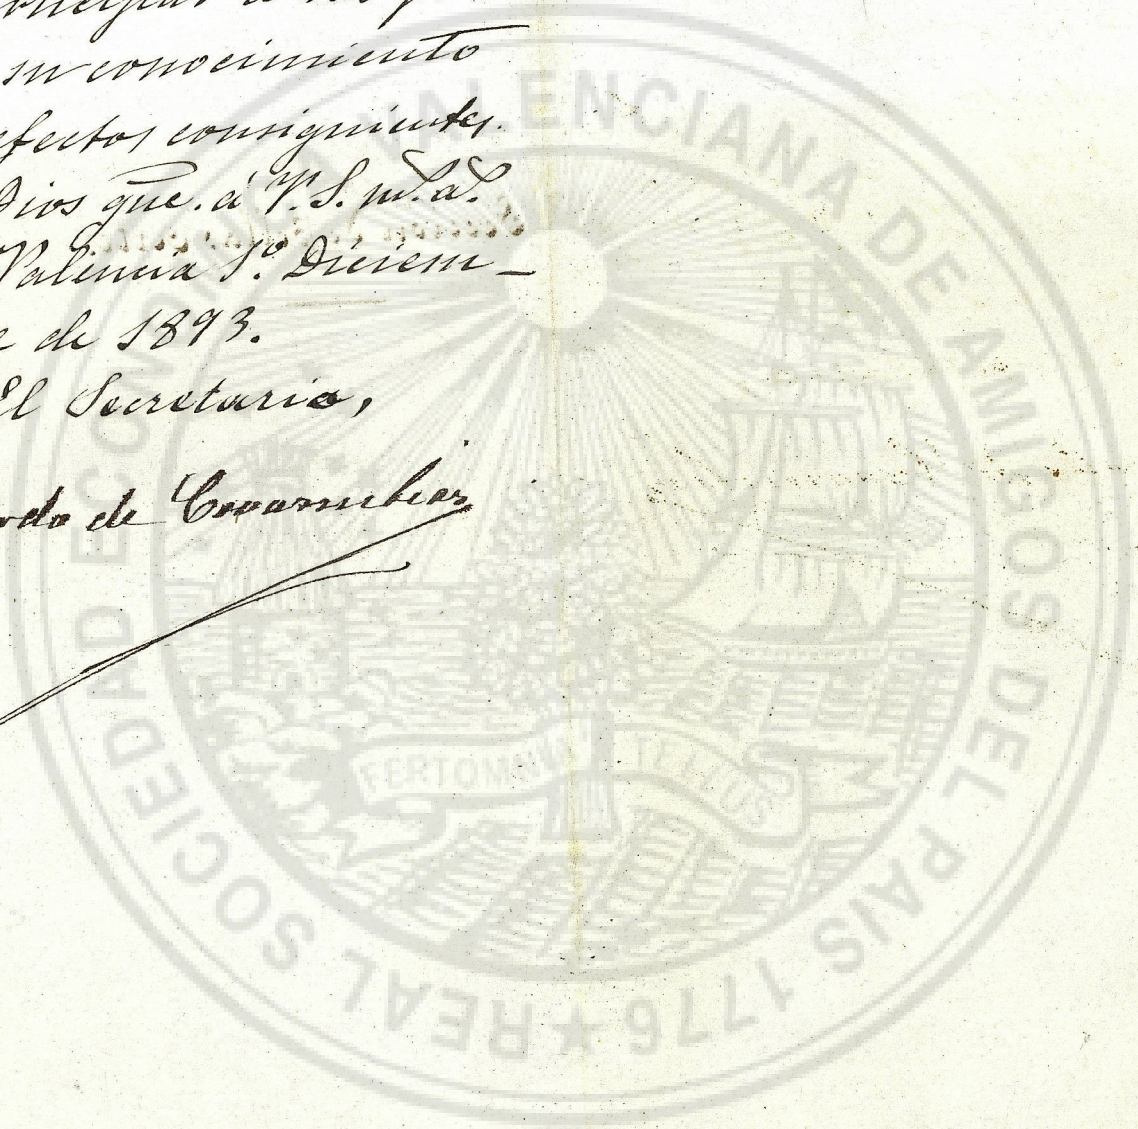 su conocimiento
efectos consiguientes.
Dios gue. á V. S. m.s a.s
Valencia 1º. Diciem-
e de 1893.
El Secretario,
de Covarrubias
REAL SOCIEDAD ECONOMICA VALENCIANA DE AMIGOS DEL PAIS 1776 ★
FERT OMNIA TELLUS